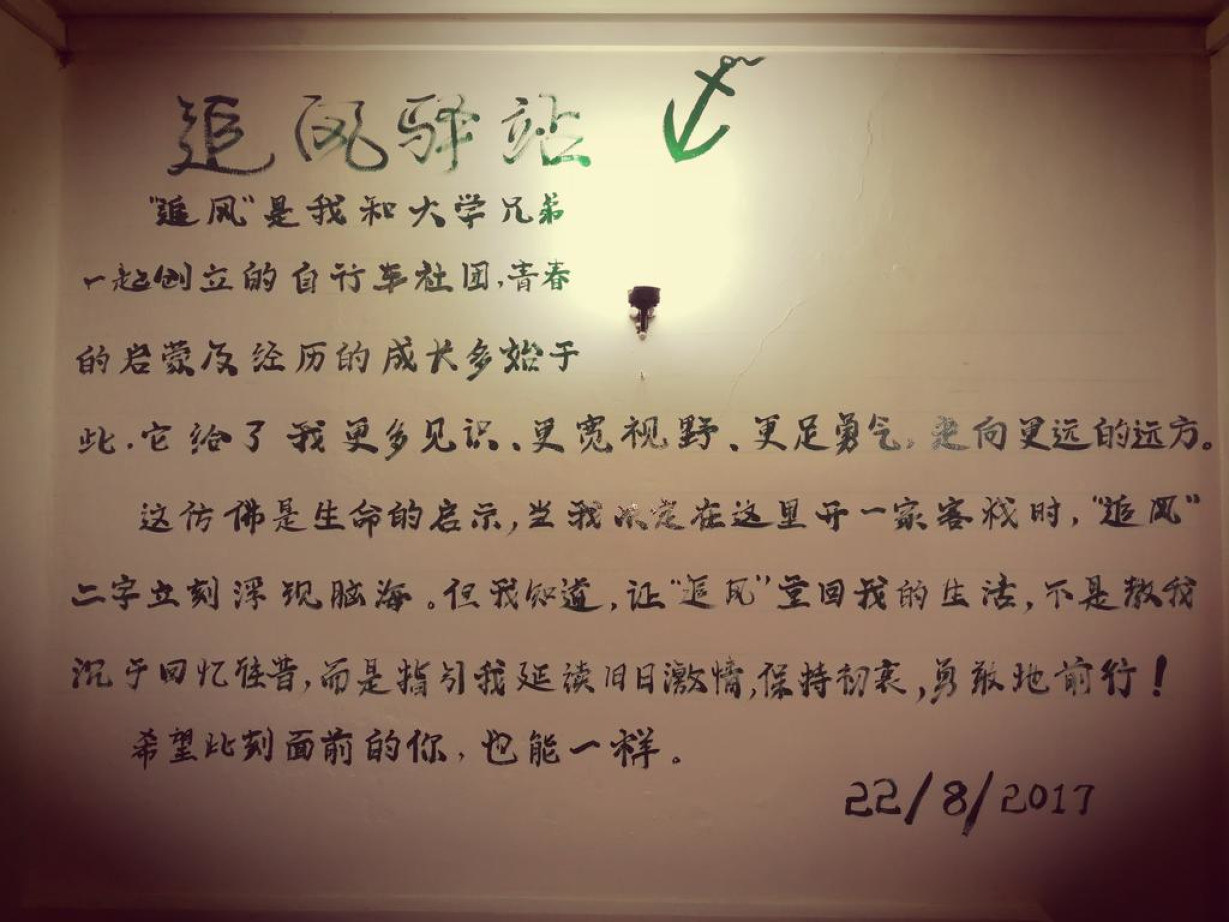 追风驿站
“追风”是我和大学兄弟
一起创立的自行车社团,青春
的启蒙及经历的成长多始于
此.它给了我更多见识、更宽视野、更足勇气,走向更远的远方。
这仿佛是生命的启示,当我决定在这里开一家客栈时,“追风”
二字立刻浮现脑海。但我知道,让“追风”重回我的生活,不是教我
沉于回忆往昔,而是指引我延续旧日激情,保持初衷,勇敢地前行!
希望此刻面前的你,也能一样。
22/8/2017